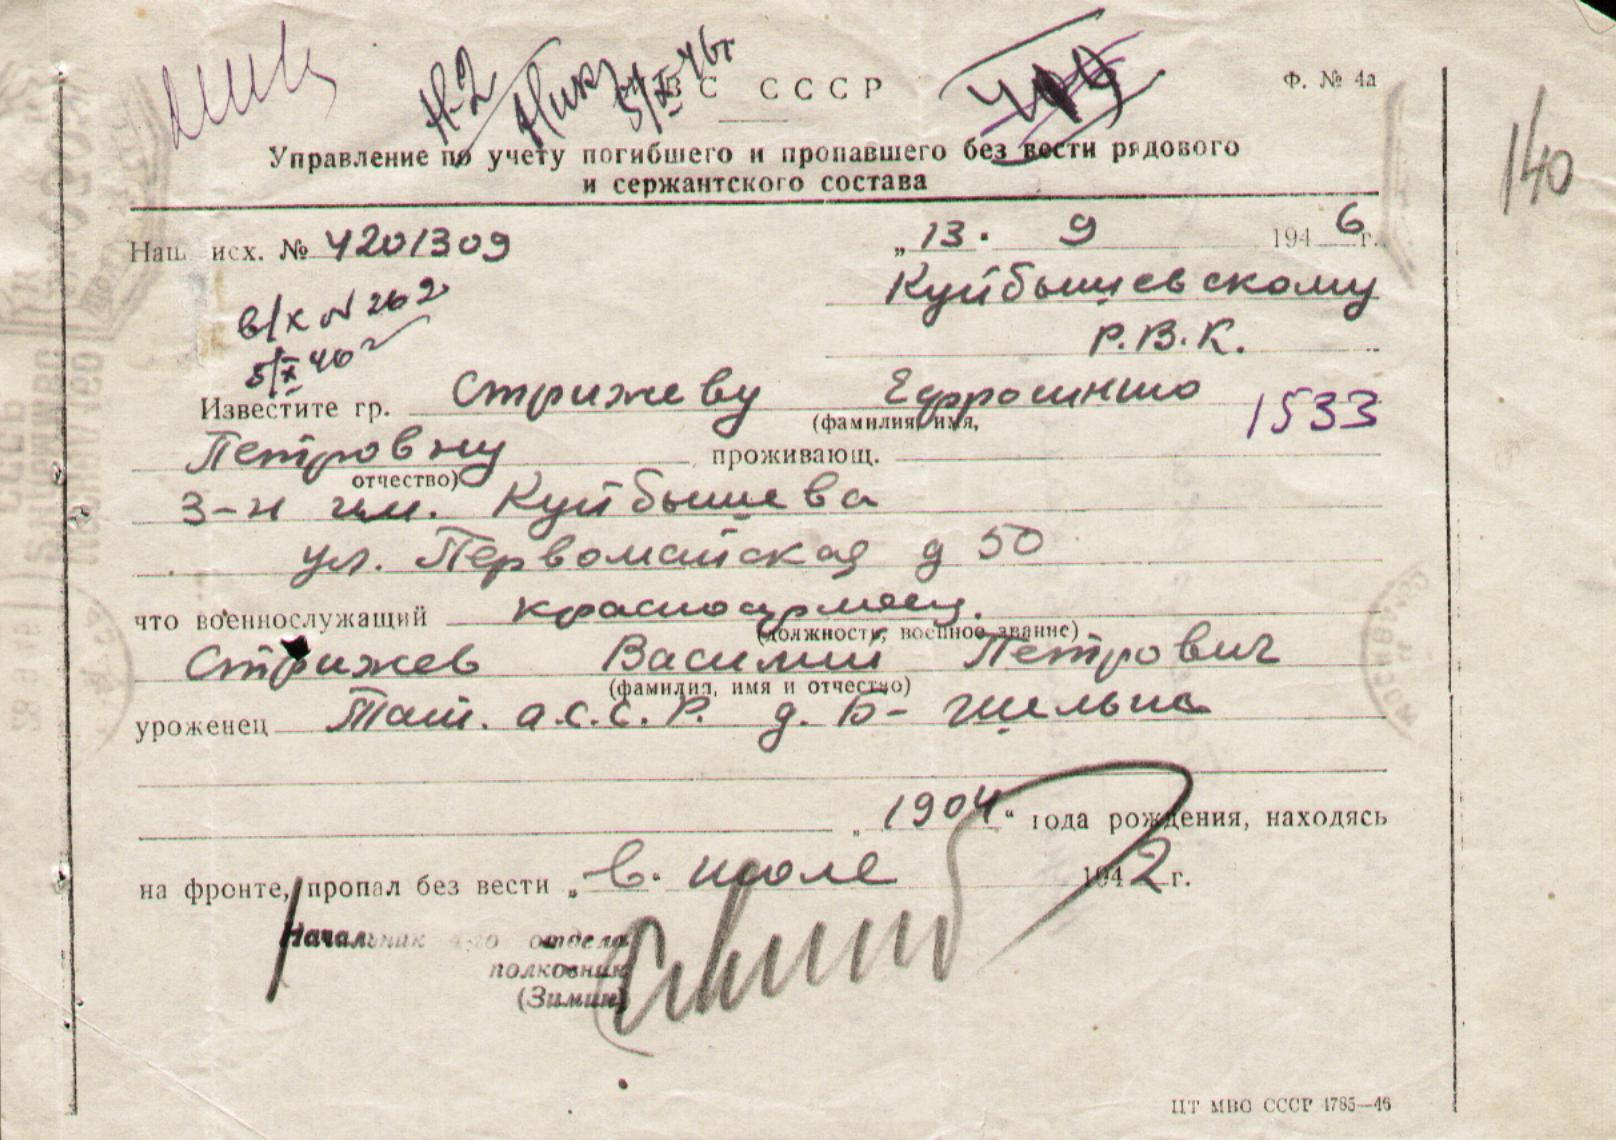 Н-2
5/X 46г
ВС СССР
Ф. № 4а
140
Управление по учету погибшего и пропавшего без вести рядового
и сержантского состава
Наш исх. № 4201309 „13. 9 1946 г.
Куйбышевскому
в/х N 262
Р.В.К.
5/X 46
Известите гр. Стрижеву Ефросинию
(фамилия, имя,
1533
Петровну проживающ.
отчество)
з-н им. Куйбышева
ул. Первомайская д 50
что военнослужащий красноармеец.
(должность, военное звание)
Стрижев Василий Петрович
(фамилия, имя и отчество)
уроженец Тат. а.С.С.Р. д. Б-
„1904“ года рождения, находясь
на фронте, пропал без вести „в. июле 1942 г.
Начальник 4-го отдела
полковник
(Зимин)
ЦТ МВС СССР 4785—46